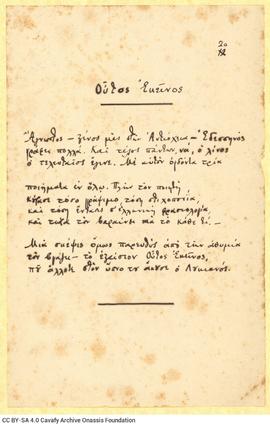 20
Οὗτος Ἐκεῖνος
Ἄγνωστος — ξένος μὲς στὴν Ἀντιόχεια — Ἐδεσσηνὸς
γράφει πολλά. Καὶ τέλος πάντων, νά, ὁ λίνος
ὁ τελευταῖος ἔγινε. Μὲ αὐτὸν ὀγδόντα τρία
ποιήματα ἐν ὅλῳ. Πλὴν τὸν ποιητὴ
κούρασε τόσο γράψιμο, τόση στιχοποιΐα,
καὶ τόση ἔντασις σ' ἑλληνικὴ φρασιολογία,
καὶ τώρα τὸν βαραίνει πιὰ τὸ κάθε τί. —
Μιὰ σκέψις ὅμως παρευθὺς ἀπὸ τὴν ἀθυμία
τὸν βγάζει — τὸ ἐξαίσιον Οὗτος Ἐκεῖνος,
ποὺ ἄλλοτε στὸν ὕπνο του ἄκουσε ὁ Λουκιανός.
CC BY-SA 4.0 Cavafy Archive Onassis Foundation